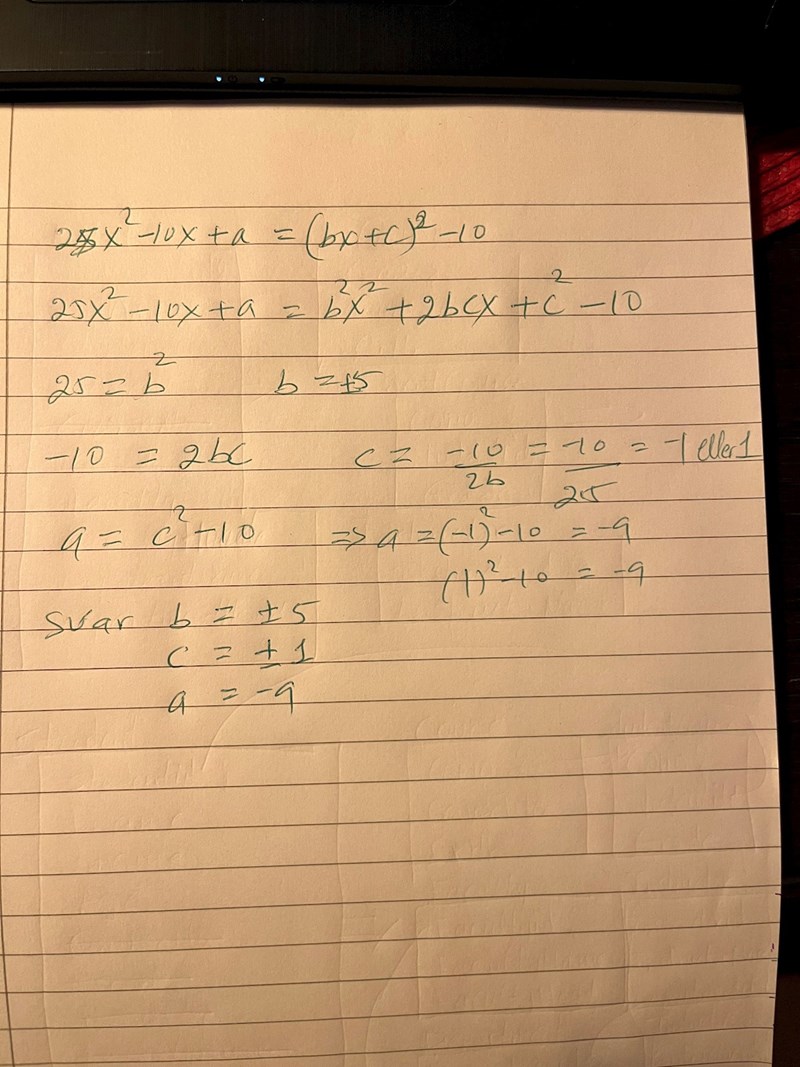 25x² -10x + a = (bx + c)² -10
25x² -10x + a = b²x² + 2bcx + c² -10
25 = b² b = ±5
-10 = 2bc c = -10/2b = -10/25 = -1 eller 1
a = c² -10 => a = (-1)² -10 = -9
(1)² -10 = -9
Svar b = ±5
c = ±1
a = -9